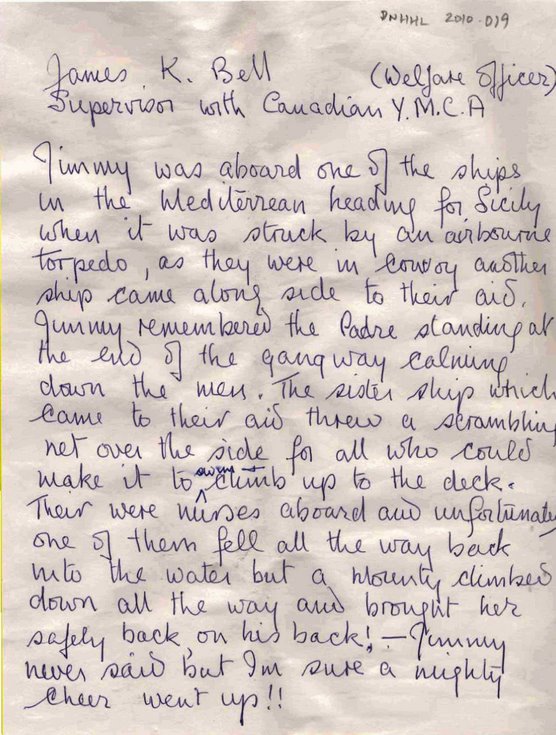 DNHHL 2010-019
James K. Bell (Welfare Officer)
Supervisor with Canadian Y.M.C.A
Jimmy was aboard one of the ships
in the Mediterrean heading for Sicily
when it was struck by an airbourne
torpedo, as they were in convoy another
ship came along side to their aid.
Jimmy remembered the Padre standing at
the end of the gangway calming
down the men. The sister ship which
came to their aid threw a scrambling
net over the side for all who could
make it to swim + climb up to the deck.
Their were nurses aboard and unfortunate
one of them fell all the way back
into the water but a Mounty climbed
down all the way and brought her
safely back on his back! - Jimmy
never said but I'm sure a mighty
cheer went up!!